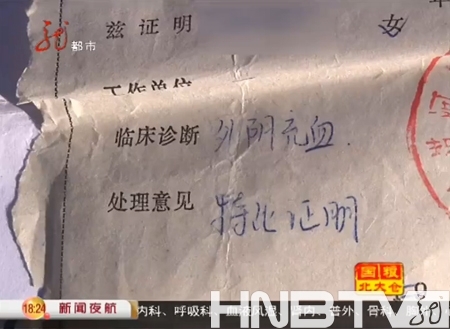 兹证明 女
都市
工作单位
临床诊断 外阴充血.
处理意见 特此证明
国粮
北大仓
18:24 新闻夜航 内科、呼吸科、血液风湿、肾内、普外、骨科、胸科
HNBTV